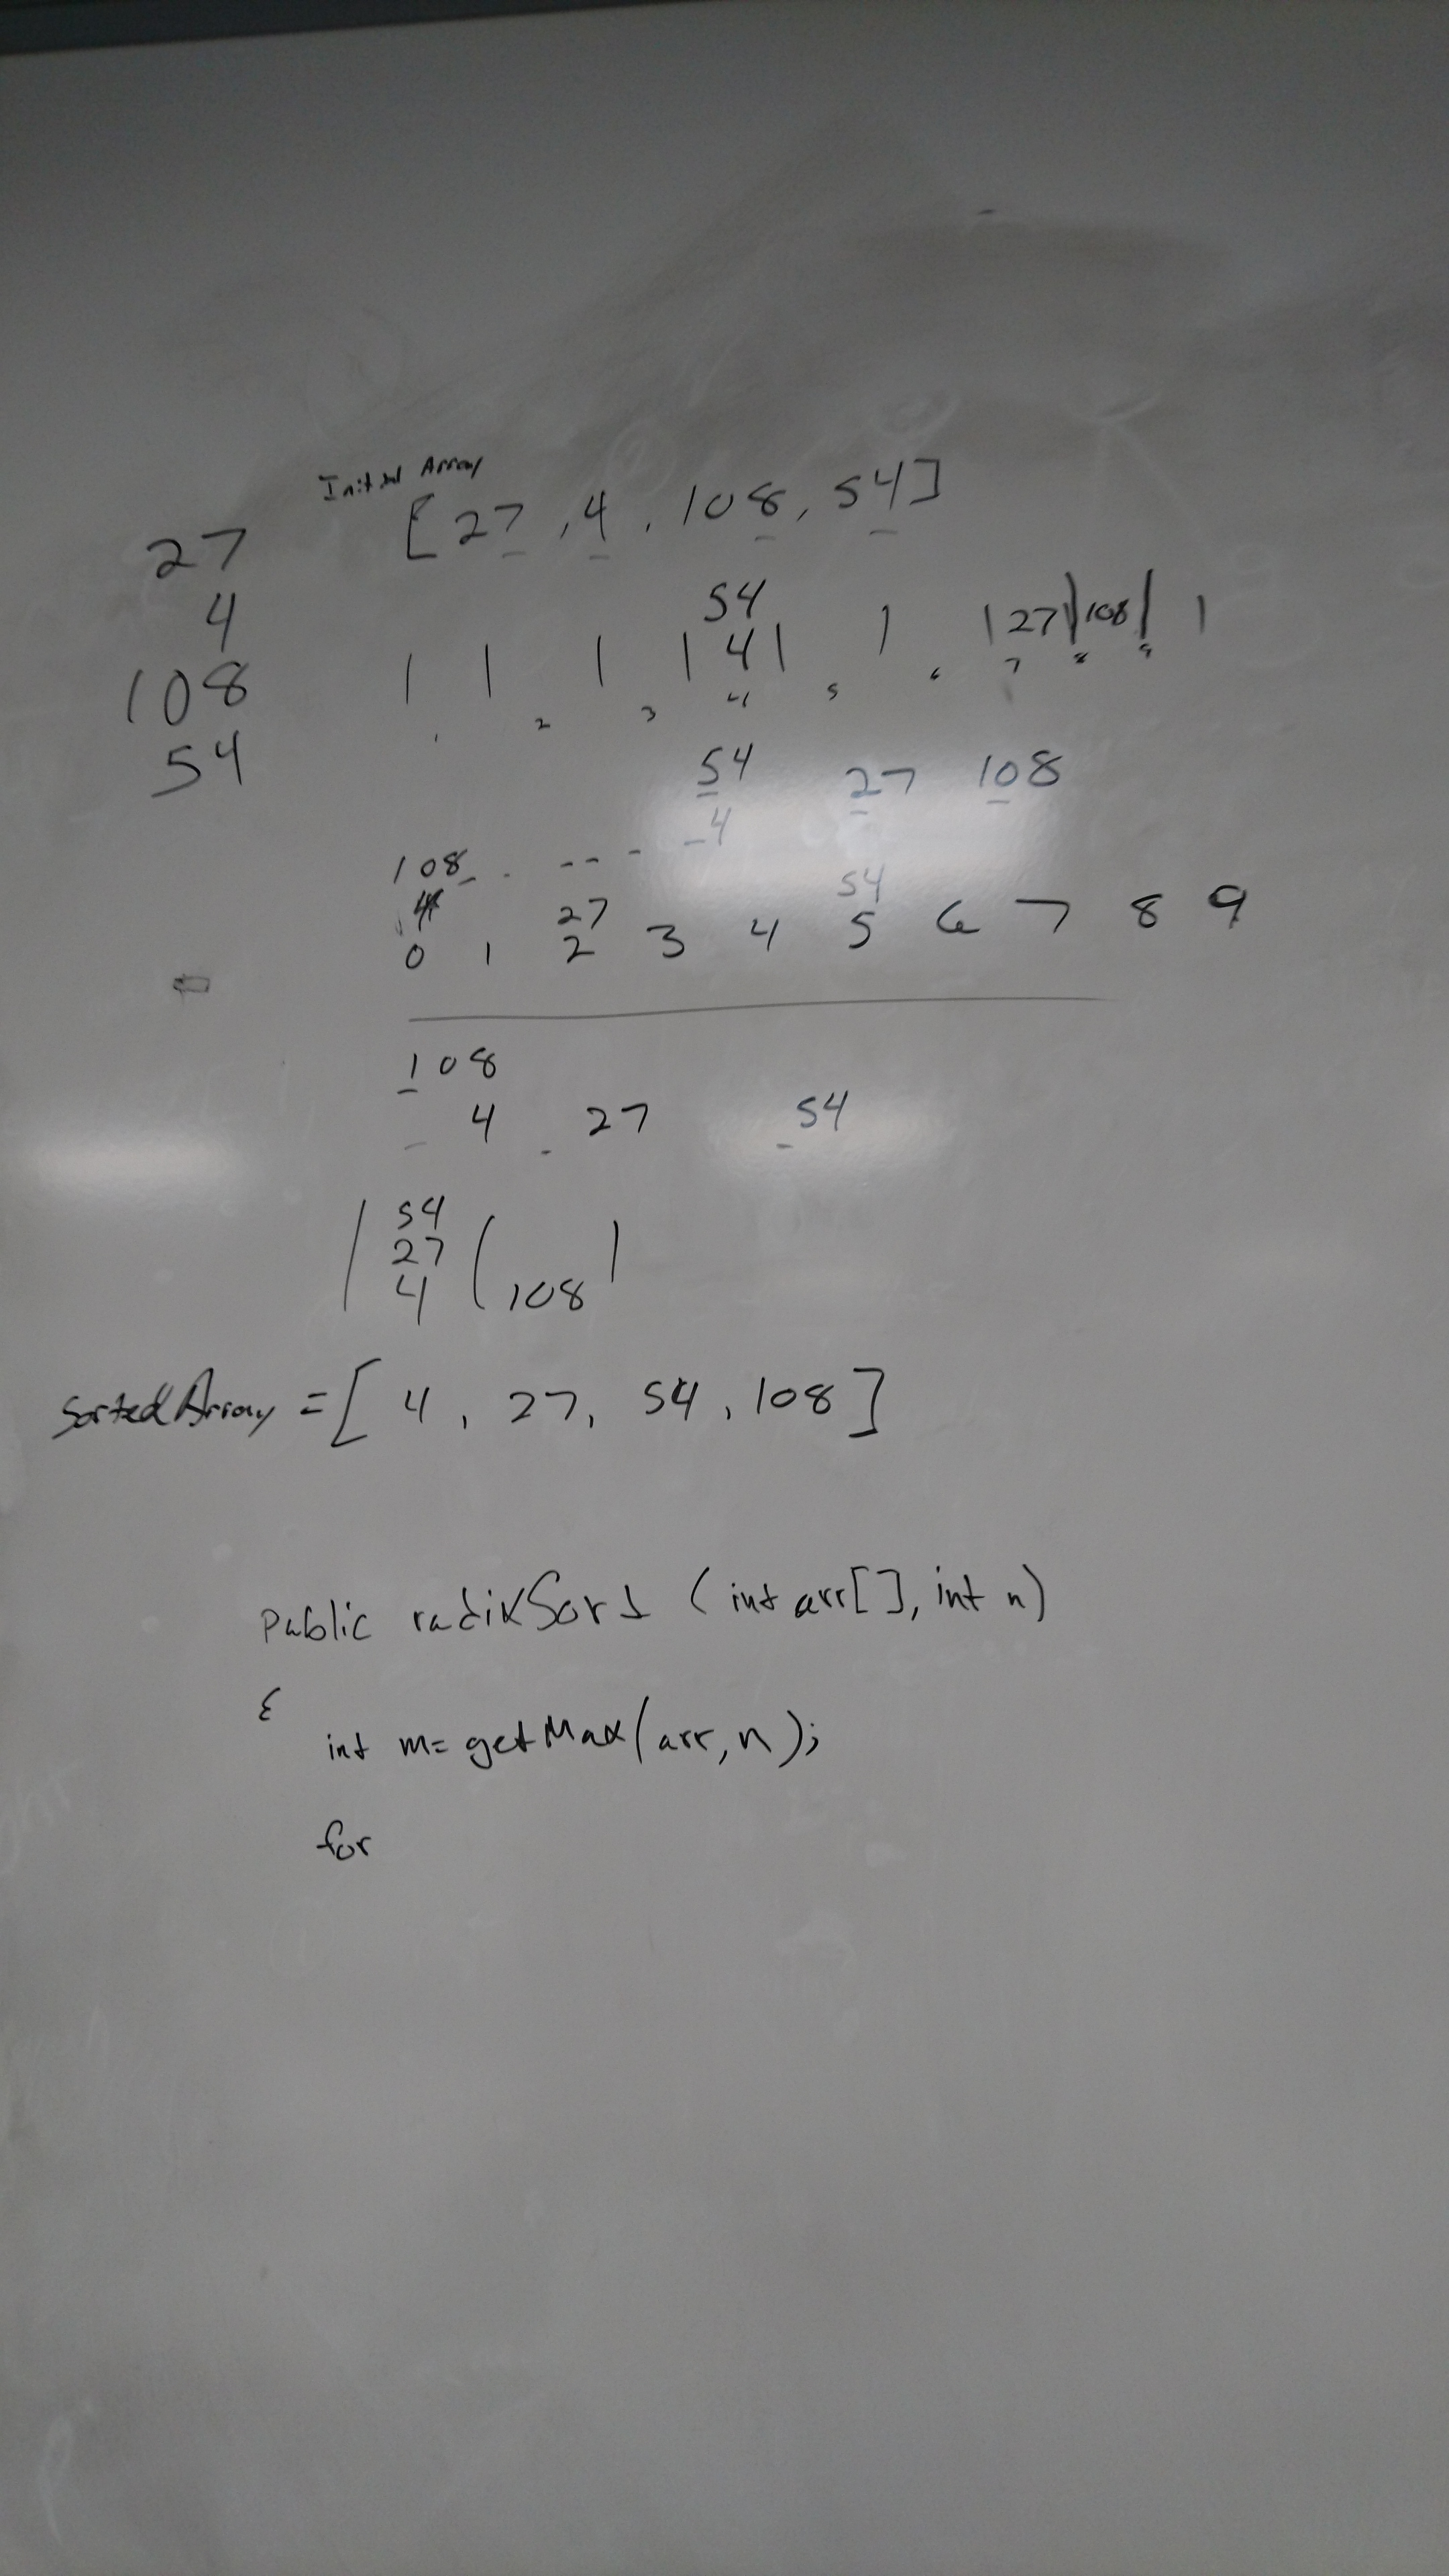 Initial Array
27 [27, 4, 108, 54]
4
108
54
54
| | | | 4 | | | 27 | 108 | |
2 3 4 5 6 7 8 9
54 27 108
4
108
54
4 27
0 1 2 3 4 5 6 7 8 9
108
4 27 54
54
27
4 ( 108 |
Sorted Array = [4, 27, 54, 108]
Public radixSort (int arr[], int n)
{
int m= getMax(arr, n);
for